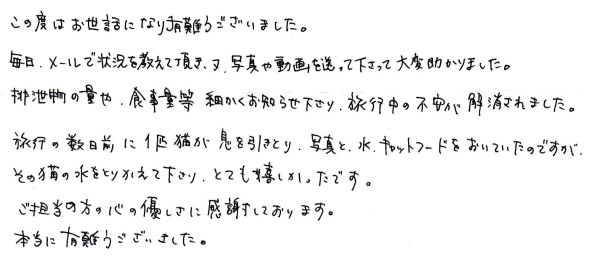 この度はお世話になり有難うございました。
毎日、メールで状況を教えて頂き、又、写真や動画を送って下さって大変助かりました。
排泄物の量や、食事量等 細かくお知らせ下さり、旅行中の不安が解消されました。
旅行の数日前に1匹猫が息を引きとり、写真と、水、キャットフードをおいていたのですが、
その猫の水をとりかえて下さり、とても嬉しかったです。
ご担当の方の心の優しさに感謝しております。
本当に有難うございました。